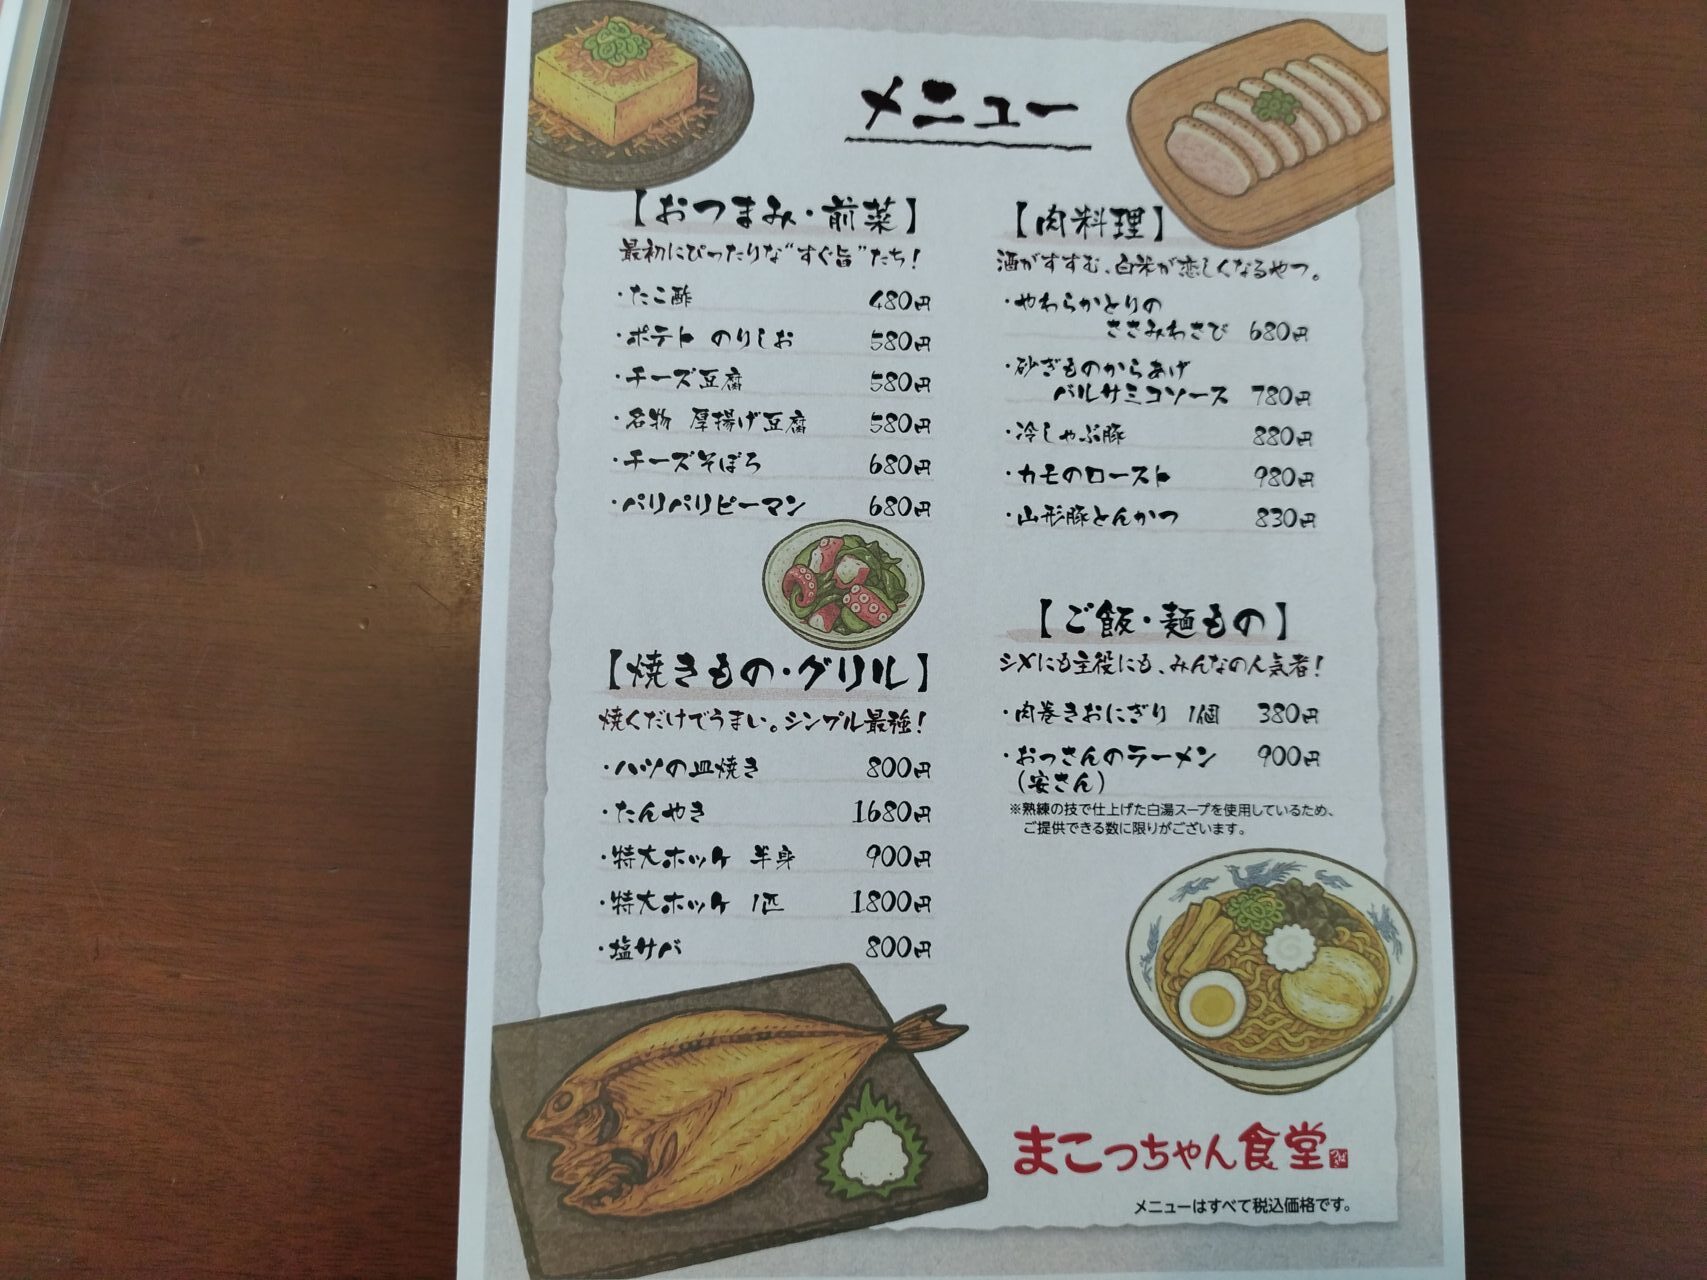 メニュー
【おつまみ・前菜】
最初にぴったりな“すぐ旨”たち！
・たこ酢 480円
・ポテト のりしお 580円
・チーズ豆腐 580円
・名物 厚揚げ豆腐 580円
・チーズそぼろ 680円
・パリパリピーマン 680円
【焼きもの・グリル】
焼くだけでうまい。シンプル最強！
・ハツの皿焼き 800円
・たんやき 1680円
・特大ホッケ 半身 900円
・特大ホッケ 1匹 1800円
・塩サバ 800円
【肉料理】
酒がすすむ、白米が恋しくなるやつ。
・やわらかとりの
ささみわさび 680円
・砂ぎものからあげ
バルサミコソース 780円
・冷しゃぶ豚 880円
・カモのロースト 980円
・山形豚とんかつ 830円
【ご飯・麺もの】
シメにも主役にも、みんなの人気者！
・肉巻きおにぎり 1個 380円
・おっさんのラーメン 900円
（安さん）
※熟練の技で仕上げた白湯スープを使用しているため、
ご提供できる数に限りがございます。
まこっちゃん食堂
メニューはすべて税込価格です。